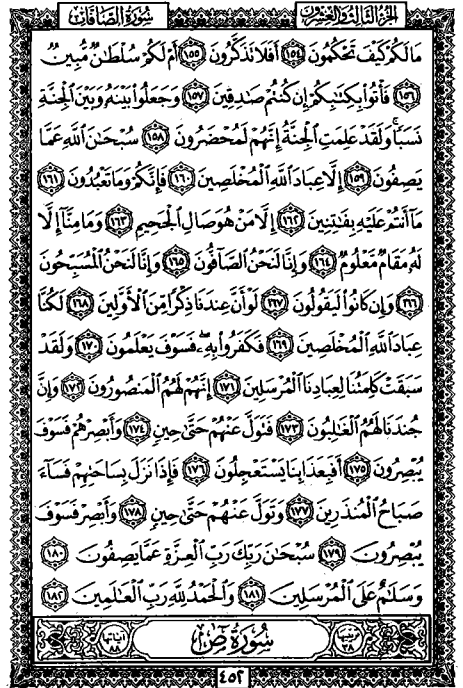 سورة الصافات الجزء الثالث والعشرون
مَا لَكُمْ كَيْفَ تَحْكُمُونَ ١٥٤ أَفَلَا تَذَكَّرُونَ ١٥٥ أَمْ لَكُمْ سُلْطَانٌ مُّبِينٌ
١٥٦ فَأْتُوا بِكِتَابِكُمْ إِن كُنتُمْ صَادِقِينَ ١٥٧ وَجَعَلُوا بَيْنَهُ وَبَيْنَ الْجِنَّةِ
نَسَبًا وَلَقَدْ عَلِمَتِ الْجِنَّةُ إِنَّهُمْ لَمُحْضَرُونَ ١٥٨ سُبْحَانَ اللَّهِ عَمَّا
يَصِفُونَ ١٥٩ إِلَّا عِبَادَ اللَّهِ الْمُخْلَصِينَ ١٦٠ فَإِنَّكُمْ وَمَا تَعْبُدُونَ ١٦١
مَا أَنتُمْ عَلَيْهِ بِفَاتِنِينَ ١٦٢ إِلَّا مَنْ هُوَ صَالِ الْجَحِيمِ ١٦٣ وَمَا مِنَّا إِلَّا
لَهُ مَقَامٌ مَّعْلُومٌ ١٦٤ وَإِنَّا لَنَحْنُ الصَّافُّونَ ١٦٥ وَإِنَّا لَنَحْنُ الْمُسَبِّحُونَ
١٦٦ وَإِن كَانُوا لَيَقُولُونَ ١٦٧ لَوْ أَنَّ عِندَنَا ذِكْرًا مِّنَ الْأَوَّلِينَ ١٦٨ لَكُنَّا
عِبَادَ اللَّهِ الْمُخْلَصِينَ ١٦٩ فَكَفَرُوا بِهِ فَسَوْفَ يَعْلَمُونَ ١٧٠ وَلَقَدْ
سَبَقَتْ كَلِمَتُنَا لِعِبَادِنَا الْمُرْسَلِينَ ١٧١ إِنَّهُمْ لَهُمُ الْمَنصُورُونَ ١٧٢ وَإِنَّ
جُندَنَا لَهُمُ الْغَالِبُونَ ١٧٣ فَتَوَلَّ عَنْهُمْ حَتَّى حِينٍ ١٧٤ وَأَبْصِرْهُمْ فَسَوْفَ
يُبْصِرُونَ ١٧٥ أَفَبِعَذَابِنَا يَسْتَعْجِلُونَ ١٧٦ فَإِذَا نَزَلَ بِسَاحَتِهِمْ فَسَاءَ
صَبَاحُ الْمُنذَرِينَ ١٧٧ وَتَوَلَّ عَنْهُمْ حَتَّى حِينٍ ١٧٨ وَأَبْصِرْ فَسَوْفَ
يُبْصِرُونَ ١٧٩ سُبْحَانَ رَبِّكَ رَبِّ الْعِزَّةِ عَمَّا يَصِفُونَ ١٨٠
وَسَلَامٌ عَلَى الْمُرْسَلِينَ ١٨١ وَالْحَمْدُ لِلَّهِ رَبِّ الْعَالَمِينَ ١٨٢
ترتيبها ٣٨ سورة ص آياتها ٨٨
٤٥٢